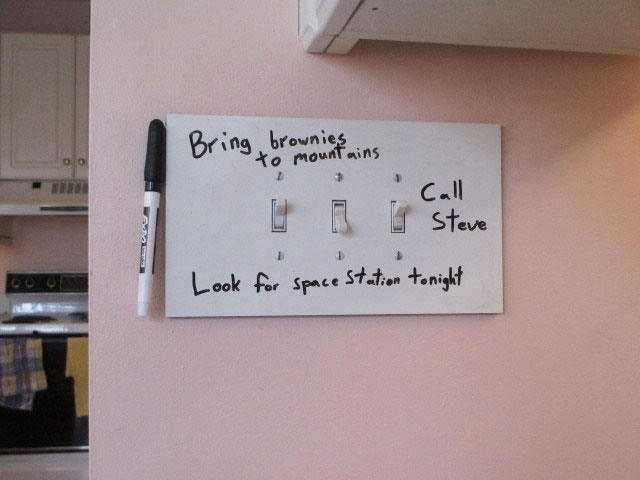 Bring brownies
to mountains
Call
Steve
Look for space station tonight
EXPO